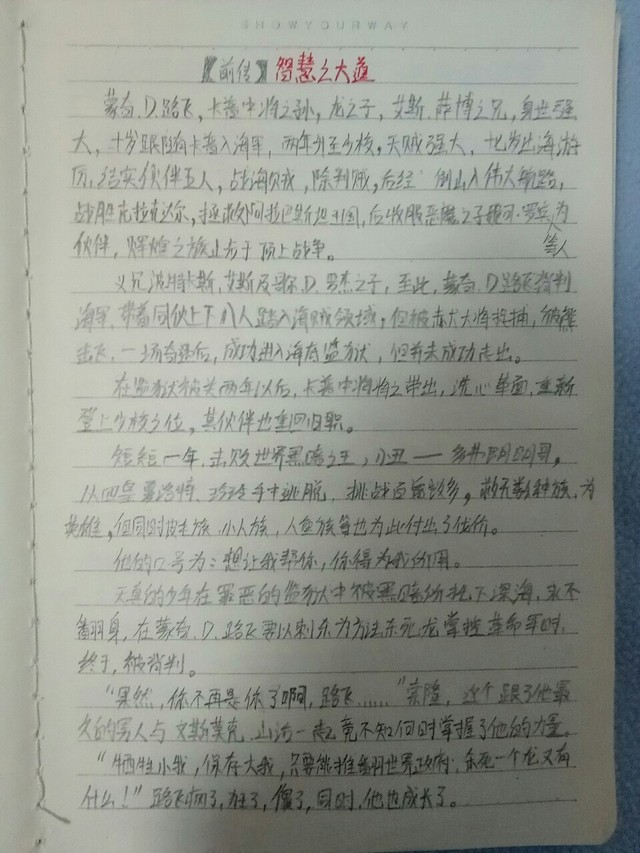 SHOWYOURWAY
【前传】智慧之大道
蒙奇.D.路飞，卡普中将之孙，龙之子，艾斯.萨博之兄，身世强
大，十岁跟随卡普入海军，两年升至少校，天赋强大，十七岁出海游
历，结实伙伴五人，战海贼，除判贼，后经 倒山入伟大航路，
战胜克拉克达尔，拯救阿拉巴斯坦王国，后收服恶魔之子妮可.罗宾等人为
伙伴，辉煌之旅止步于顶上战争。
义兄波特卡斯.艾斯及哥尔.D.罗杰之子，至此，蒙奇.D.路飞背判
海军，带着同伙上下八人踏入海贼领域，但被赤犬大将抓捕，被熊
击飞，一场奇遇后，成功进入海底监狱，但并未成功走出。
在监狱被关两年以后，卡普中将将之带出，洗心革面，重新
登上少校之位，其伙伴也重回旧职。
短短一年，击败世界黑暗之王，小丑——多弗朗明哥，
从四皇夏洛特.玲玲手中逃脱，挑战百兽凯多，救无数种族，为
英雄，但同时皮毛族，小人族，人鱼族等也为此付出了代价。
他的口号为：想让我帮你，你得为我所用。
天真的少年在罪恶的监狱中被黑暗所拖下深海，永不
翻身，在蒙奇.D.路飞要以刺杀为方法杀死龙掌控革命军时，
终于，被背判。
“果然，你不再是你了啊，路飞……”索隆，这个跟了他最
久的男人与文斯莫克.山治一起竟不知何时掌握了他的力量。
“牺牲小我，保存大我，只要能推翻世界政府，杀死一个龙又有
什么！”路飞疯了，狂了，傻了，同时，他也成长了。